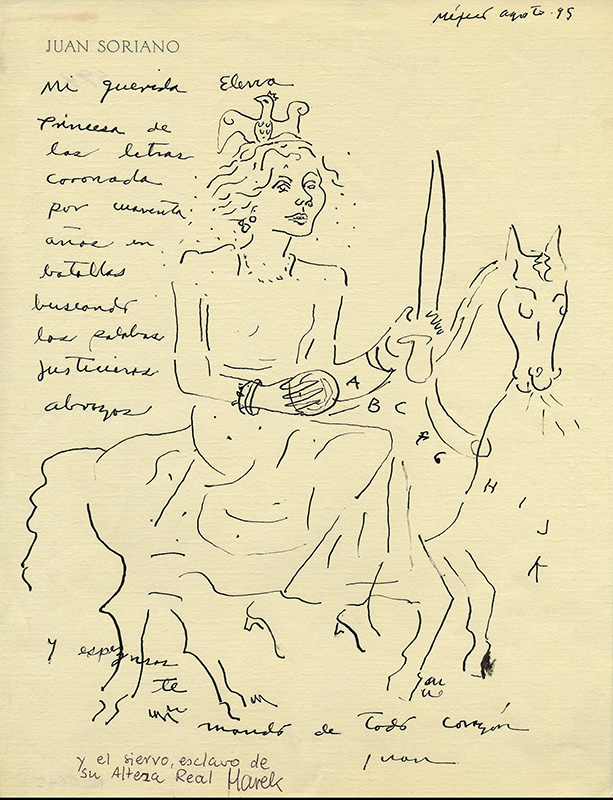 México agosto. 95
JUAN SORIANO
Mi querida Elena
Princesa de
las letras
coronada
por cuarenta
años en
batallas
buscando
las palabras
justicieras
abrazos
A
B C
F
G
H
I
J
K
y esperanzas
te
mando de todo corazón
Juan
y el siervo, esclavo de
su Alteza Real Marek